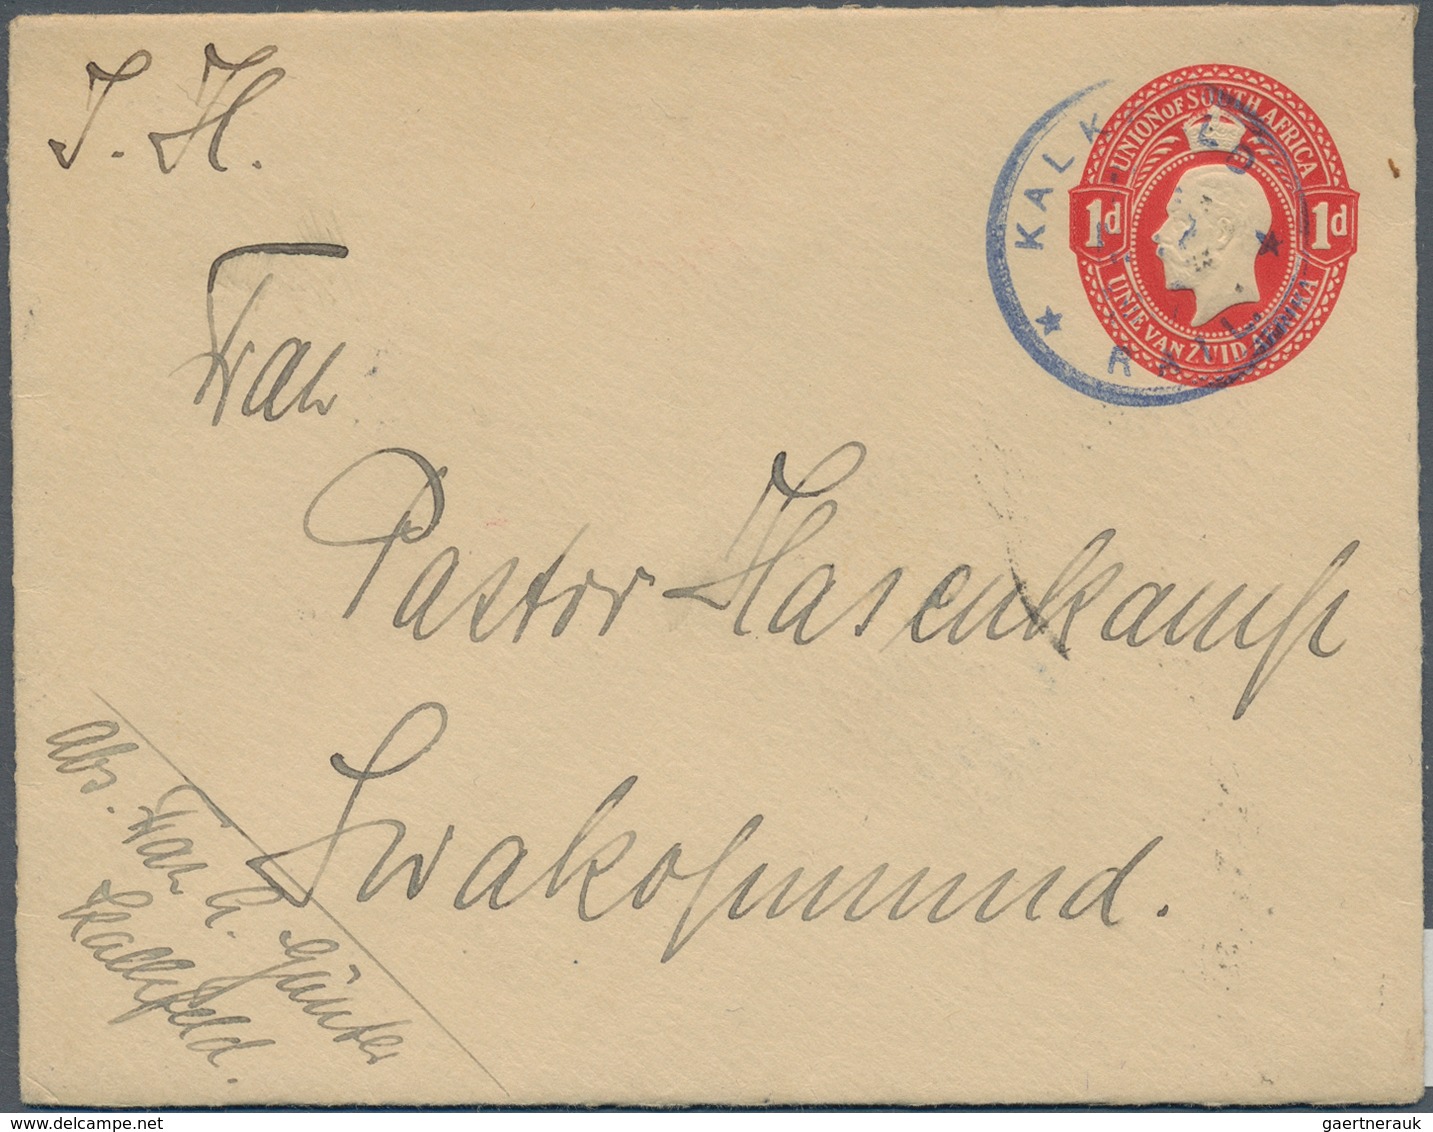 J. H.
UNION OF SOUTH AFRICA
1d 1d
UNIE VAN ZUID AFRIKA
KALK LD
RAIL
Frau
Pastor Hasenkamp
Swakopmund.
Abs. Frau G. Günter
Kalkfeld.
delcampe.net
gaertnerauk